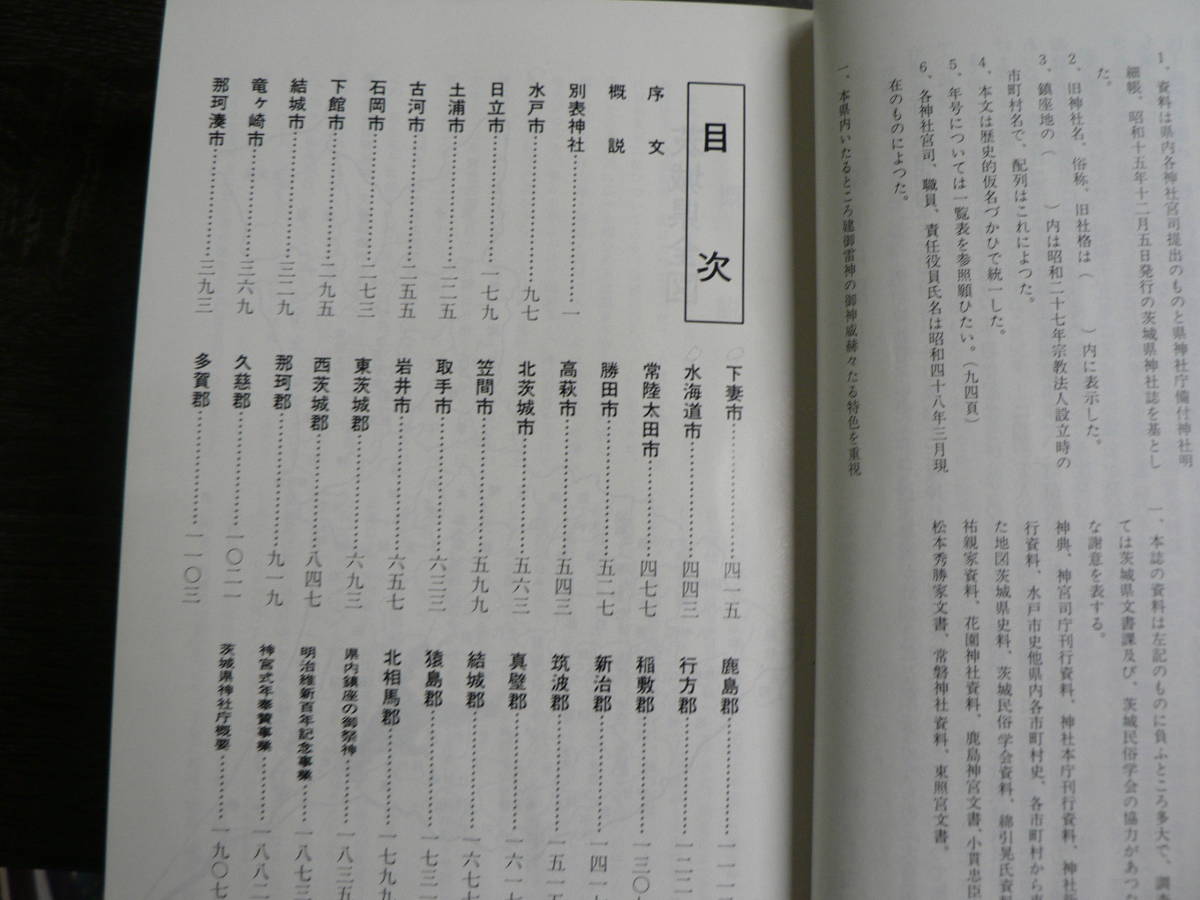 1、資料は県内各神社宮司提出のものと県神社庁備付神社明
細帳、昭和十五年十二月五日発行の茨城県神社誌を基とし
た。
2、旧神社名、俗称、旧社格は（　　）内に表示した。
3、鎮座地の（　　）内は昭和二十七年宗教法人設立時の
市町村名で、配列はこれによつた。
4、本文は歴史的仮名づかひで統一した。
5、年号については一覧表を参照願ひたい。（九四頁）
6、各神社宮司、職員、責任役員氏名は昭和四十八年三月現
在のものによつた。
一、本県内いたるところ建御雷神の御神威赫々たる特色を重視
一、本誌の資料は左記のものに負ふところ多大で、調査
ては茨城県文書課及び、茨城民俗学会の協力があつた
な謝意を表する。
神典、神宮司庁刊行資料、神社本庁刊行資料、神社新
行資料、水戸市史他県内各市町村史、各市町村から
た地図茨城県史料、茨城民俗学会資料、綿引晃氏資
祐親家資料、花園神社資料、鹿島神宮文書、小貫忠臣
松本秀勝家文書、常磐神社資料、東照宮文書。
目次
序文
概説
別表神社……一
水戸市……九七
日立市……一七九
土浦市……二二五
古河市……二五五
石岡市……二七三
下館市……二九五
結城市……三二九
竜ヶ崎市……三六九
那珂湊市……三九三
下妻市……四一五
水海道市……四四三
常陸太田市……四七七
勝田市……五二七
高萩市……五四三
北茨城市……五六三
笠間市……五九九
取手市……六三三
岩井市……六五七
東茨城郡……六九三
西茨城郡……八四七
那珂郡……九一九
久慈郡……一〇二一
多賀郡……一一〇三
鹿島郡……一一
行方郡……一二二
稲敷郡……一三〇
新治郡……一四一
筑波郡……一五一五
真壁郡……一六一
結城郡……一六七七
猿島郡……一七三一
北相馬郡……一七九九
県内鎮座の御祭神……一八三五
明治維新百年記念事業……一八七三
神宮式年奉賛事業……一八八二
茨城県神社庁概要……一九〇七